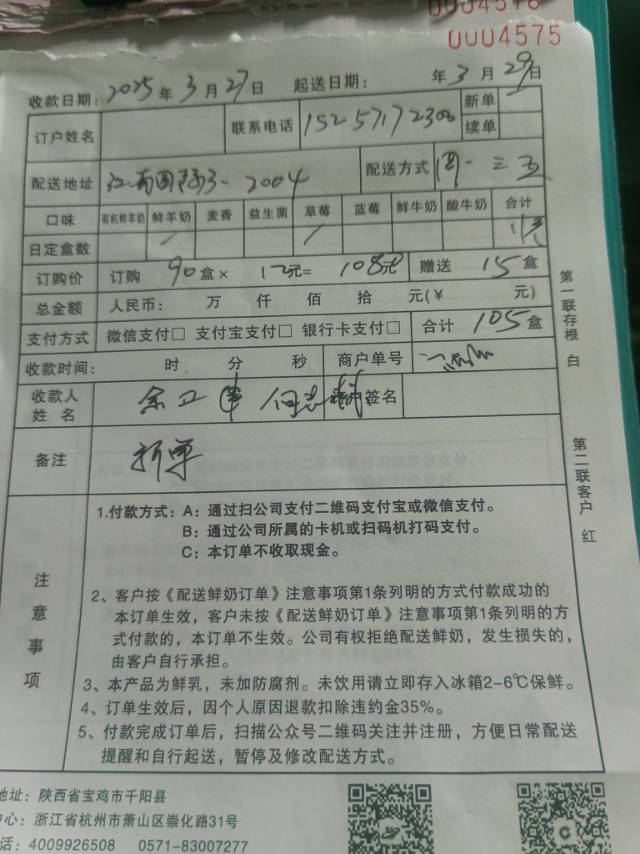 0004576
0004575
收款日期：2025年3月27日 起送日期： 年3月29日
订户姓名 联系电话 15257172308 新单
续单
配送地址 江南国际3-2004 配送方式 周一三五
口味 有机鲜羊奶 鲜羊奶 麦香 益生菌 草莓 蓝莓 鲜牛奶 酸牛奶 合计
日定盒数 / /
订购价 订购 90盒× 12元= 1080元 赠送 15盒
总金额 人民币： 万 仟 佰 拾 元(¥ 元)
支付方式 微信支付□ 支付宝支付□ 银行卡支付□ 合计 105盒
收款时间： 时 分 秒 商户单号
收款人 签名
姓名
备注
第一联存根 白
第二联客户 红
注意事项
1.付款方式：A：通过扫公司支付二维码支付宝或微信支付。
B：通过公司所属的卡机或扫码机打码支付。
C：本订单不收取现金。
2、客户按《配送鲜奶订单》注意事项第1条列明的方式付款成功的
本订单生效，客户未按《配送鲜奶订单》注意事项第1条列明的方
式付款的，本订单不生效。公司有权拒绝配送鲜奶，发生损失的，
由客户自行承担。
3、本产品为鲜乳，未加防腐剂。未饮用请立即存入冰箱2-6℃保鲜。
4、订单生效后，因个人原因退款扣除违约金35%。
5、付款完成订单后，扫描公众号二维码关注并注册，方便日常配送
提醒和自行起送，暂停及修改配送方式。
地址：陕西省宝鸡市千阳县
中心：浙江省杭州市萧山区崇化路31号
电话：4009926508 0571-83007277